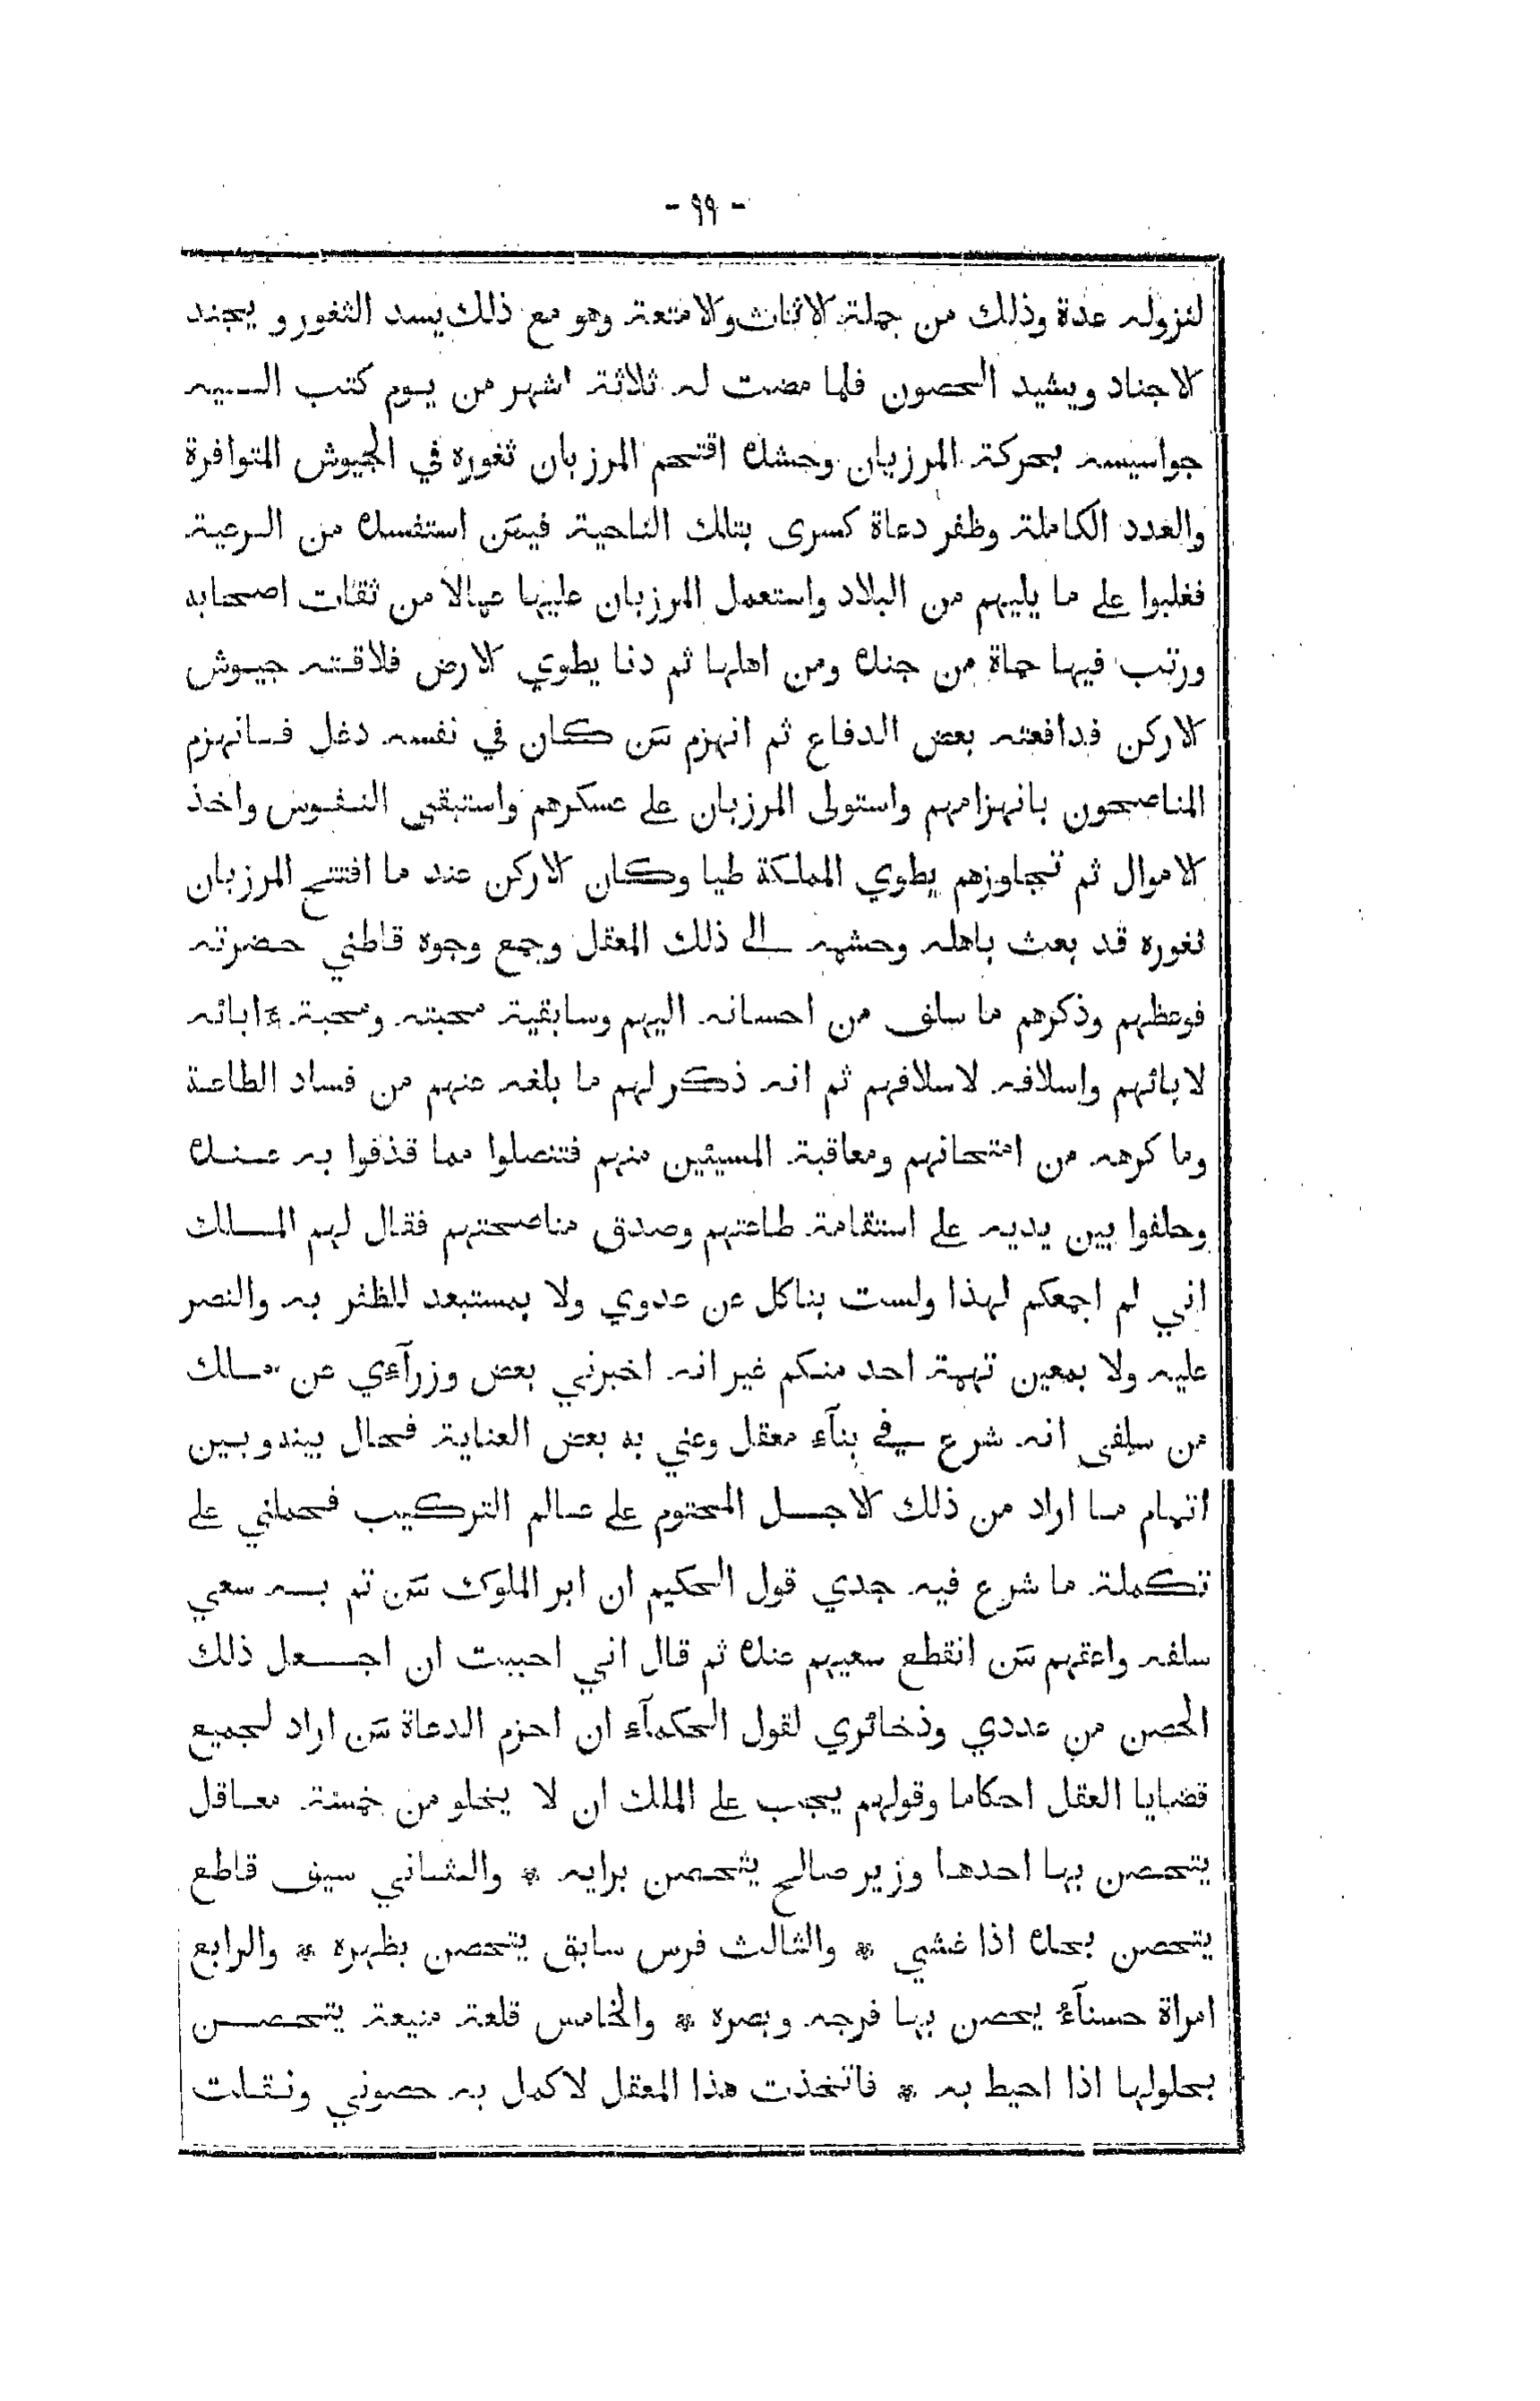 - ٩٩ -
لنزوله عدة وذلك من جملة الاثاث والامتعة وهو مع ذلك يسد الثغور و يجند
الاجناد ويشيد الحصون فلما مضت له ثلاثة اشهر من يـوم كتب الـيه
جواسيسه بحركة المرزبان وحشده اقتحم المرزبان ثغوره في الجيوش المتوافرة
والعدد الكاملة وظفر دعاة كسرى بتلك الناحية فيمَن استفسده من الرعية
فغلبوا على ما يليهم من البلاد واستعمل المرزبان عليها عمالا من ثقات اصحابه
ورتب فيها حماة من جنده ومن اهلها ثم دنا يطوي الارض فلاقته جيوش
الاركن فدافعته بعض الدفاع ثم انهزم مَن كان في نفسه دغل فانهزم
المناصحون بانهزامهم واستولى المرزبان على عسكرهم واستبقى النفوس واخذ
الاموال ثم تجاوزهم يطوي المملكة طيا وكان الاركن عند ما افتتح المرزبان
ثغوره قد بعث باهله وحشمه الى ذلك المعقل وجمع وجوه قاطني حضرته
فوعظهم وذكرهم ما سلف من احسانه اليهم وسابقية محبته ومحبة ءابائه
لابائهم واسلافه لاسلافهم ثم انه ذكر لهم ما بلغه عنهم من فساد الطاعة
وما كرهه من امتحانهم ومعاقبة المسيئين منهم فتنصلوا مما قذفوا به عنده
وحلفوا بين يديه على استقامة طاعتهم وصدق مناصحتهم فقال لهم الملك
اني لم اجمعكم لهذا ولست بناكل عن عدوي ولا بمستبعد للظفر به والنصر
عليه ولا بمعين تهمة احد منكم غير انه اخبرني بعض وزرآءي عن ملك
من سلفي انه شرع في بنآء معقل وعني به بعض العناية فحال بينه وبين
اتمام ما اراد من ذلك الاجل المحتوم على عالم التركيب فحملني على
تكملة ما شرع فيه جدي قول الحكيم ان ابر الملوك مَن تم به سعي
سلفه واعقهم مَن انقطع سعيهم عنده ثم قال اني احببت ان اجعل ذلك
الحصن من عددي وذخائري لقول الحكمآء ان احزم الدعاة مَن اراد لجميع
قضايا العقل احكاما وقولهم يجب على الملك ان لا يخلو من خمسة معاقل
يتحصن بها احدها وزير صالح يتحصن برايه * والثاني سيف قاطع
يتحصن بحده اذا غشي * والثالث فرس سابق يتحصن بظهره * والرابع
امراة حسنآء يحصن بها فرجه وبصره * والخامس قلعة منيعة يتحصن
بحلولها اذا احيط به * فاتخذت هذا المعقل لاكمل به حصوني ونقلت